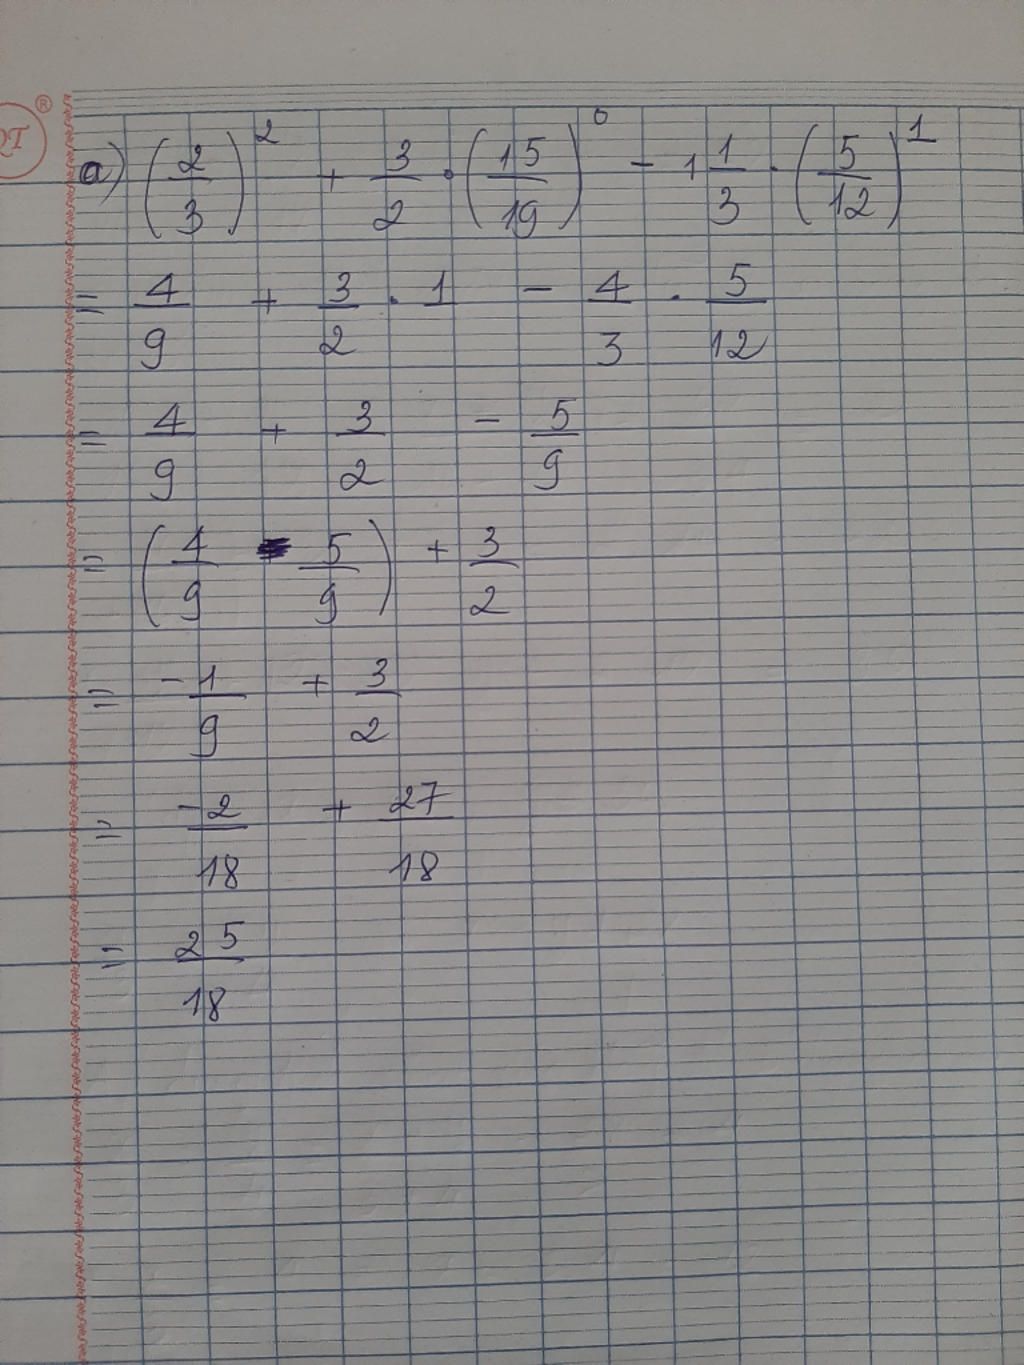 a) (2/3)^2 + 3/2 . (15/19)^0 - 1 1/3 . (5/12)^1
= 4/9 + 3/2 . 1 - 4/3 . 5/12
= 4/9 + 3/2 - 5/9
= (4/9 - 5/9) + 3/2
= -1/9 + 3/2
= -2/18 + 27/18
= 25/18